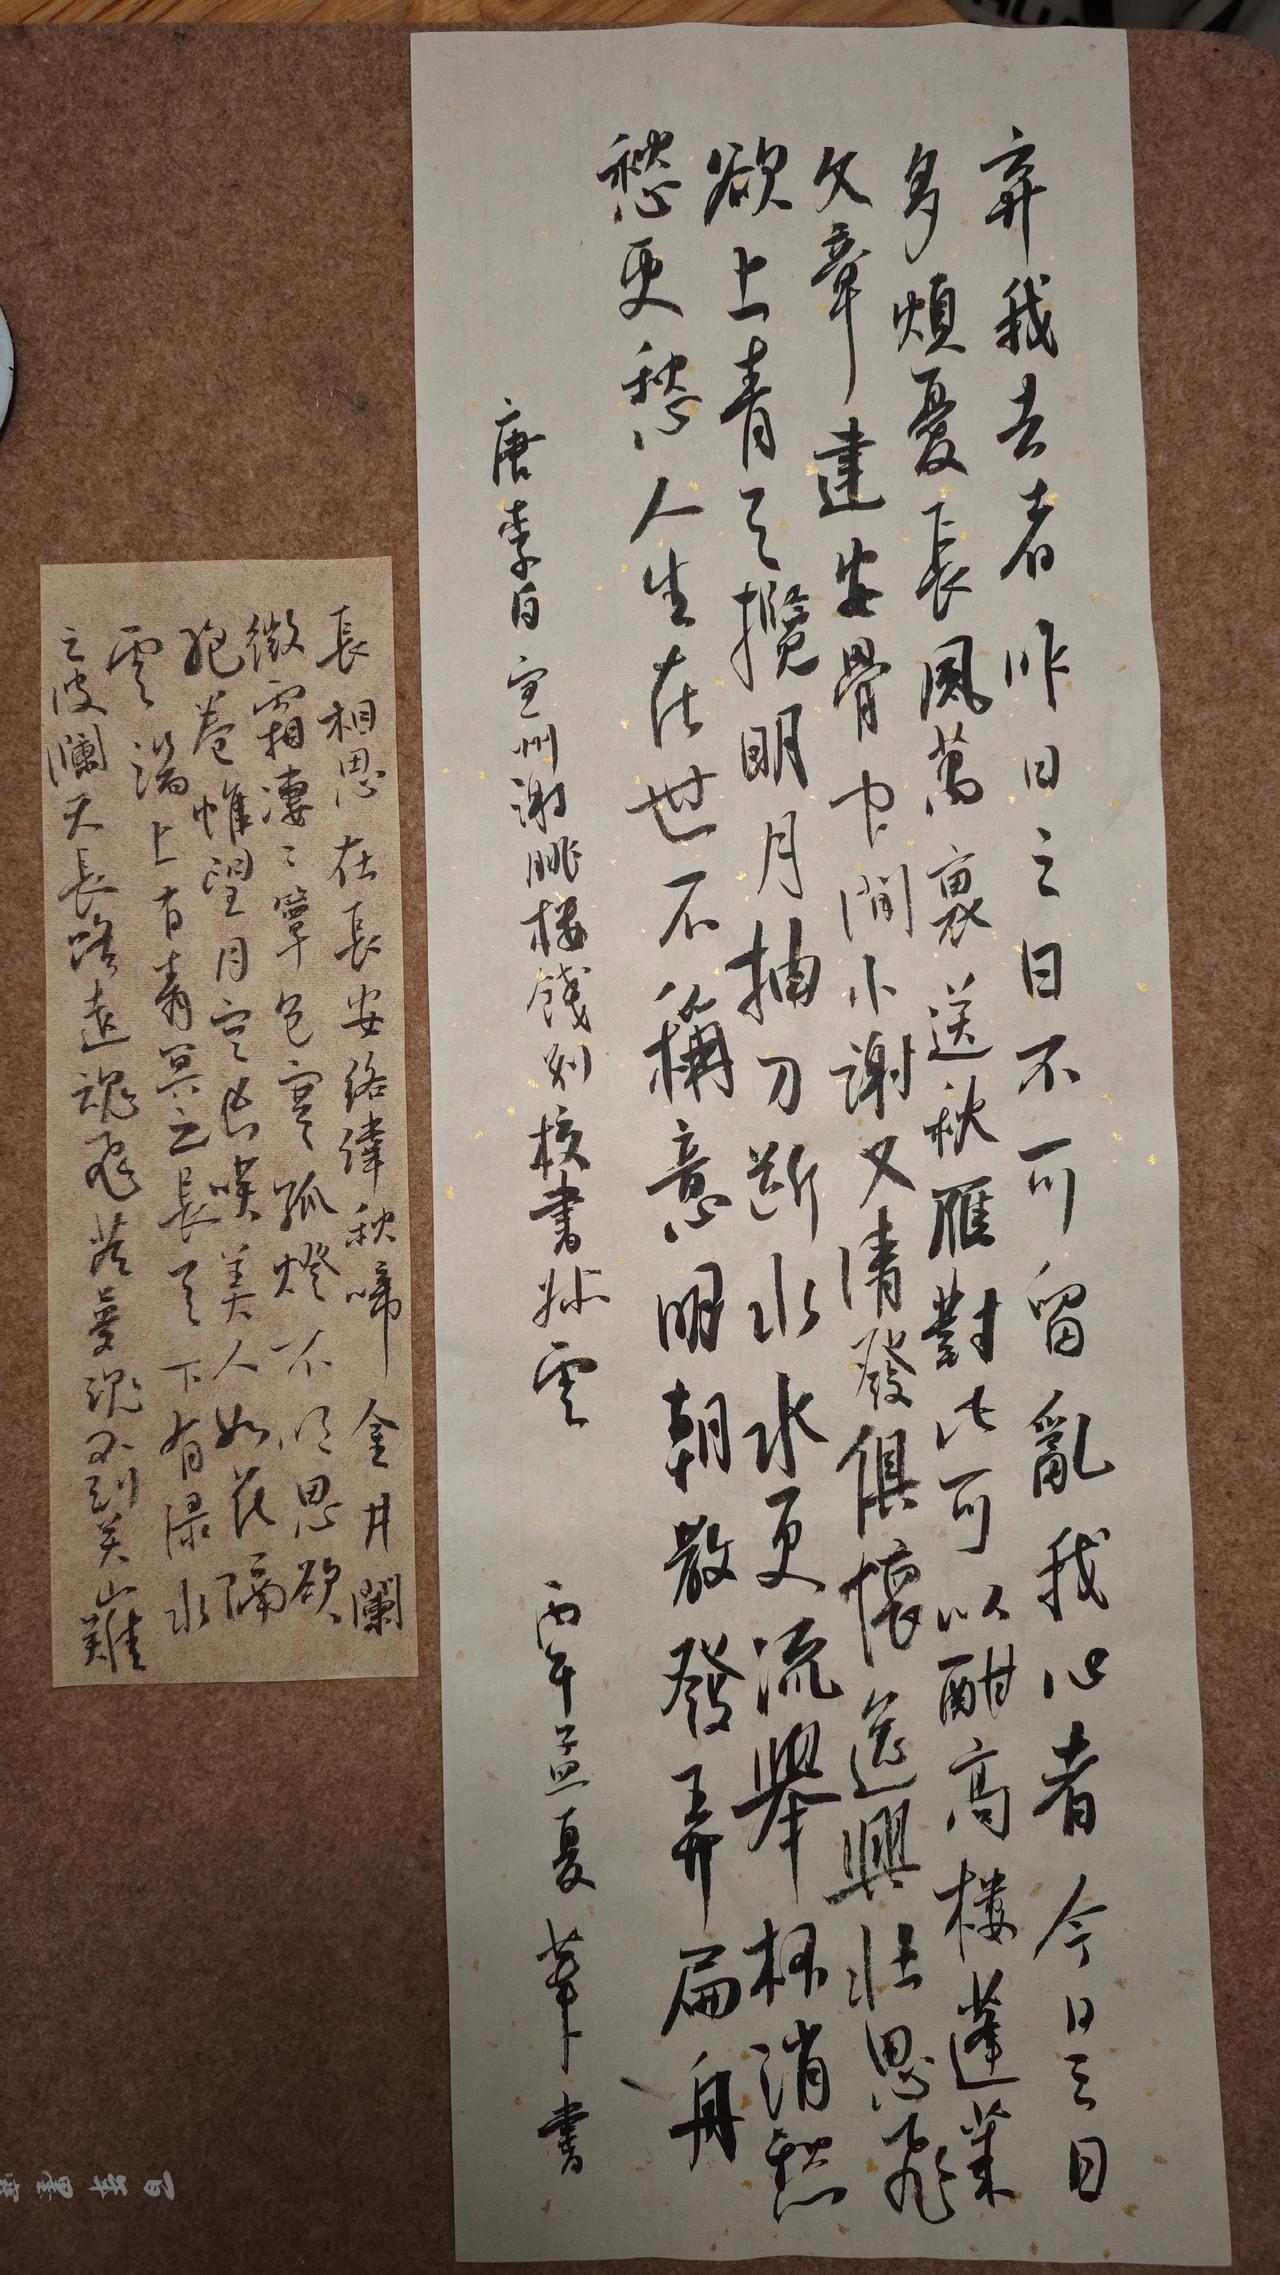 弃我去者昨日之日不可留亂我心者今日之日
多煩憂長風萬裏送秋雁對此可以酣高樓蓬萊
文章建安骨中間小謝又清發俱懷逸興壯思飛
欲上青天攬明月抽刀斷水水更流舉杯消愁
愁更愁人生在世不稱意明朝散發弄扁舟
唐李白宣州謝朓樓餞別校書叔雲
丙午孟夏 華書
長相思在長安絡緯秋啼金井闌
微霜淒〻簟色寒孤燈不明思欲
絕卷帷望月空長嘆美人如花隔
雲端上有青冥之長天下有淥水
之波瀾天長路遠魂飛苦夢魂不到關山難
百年墨